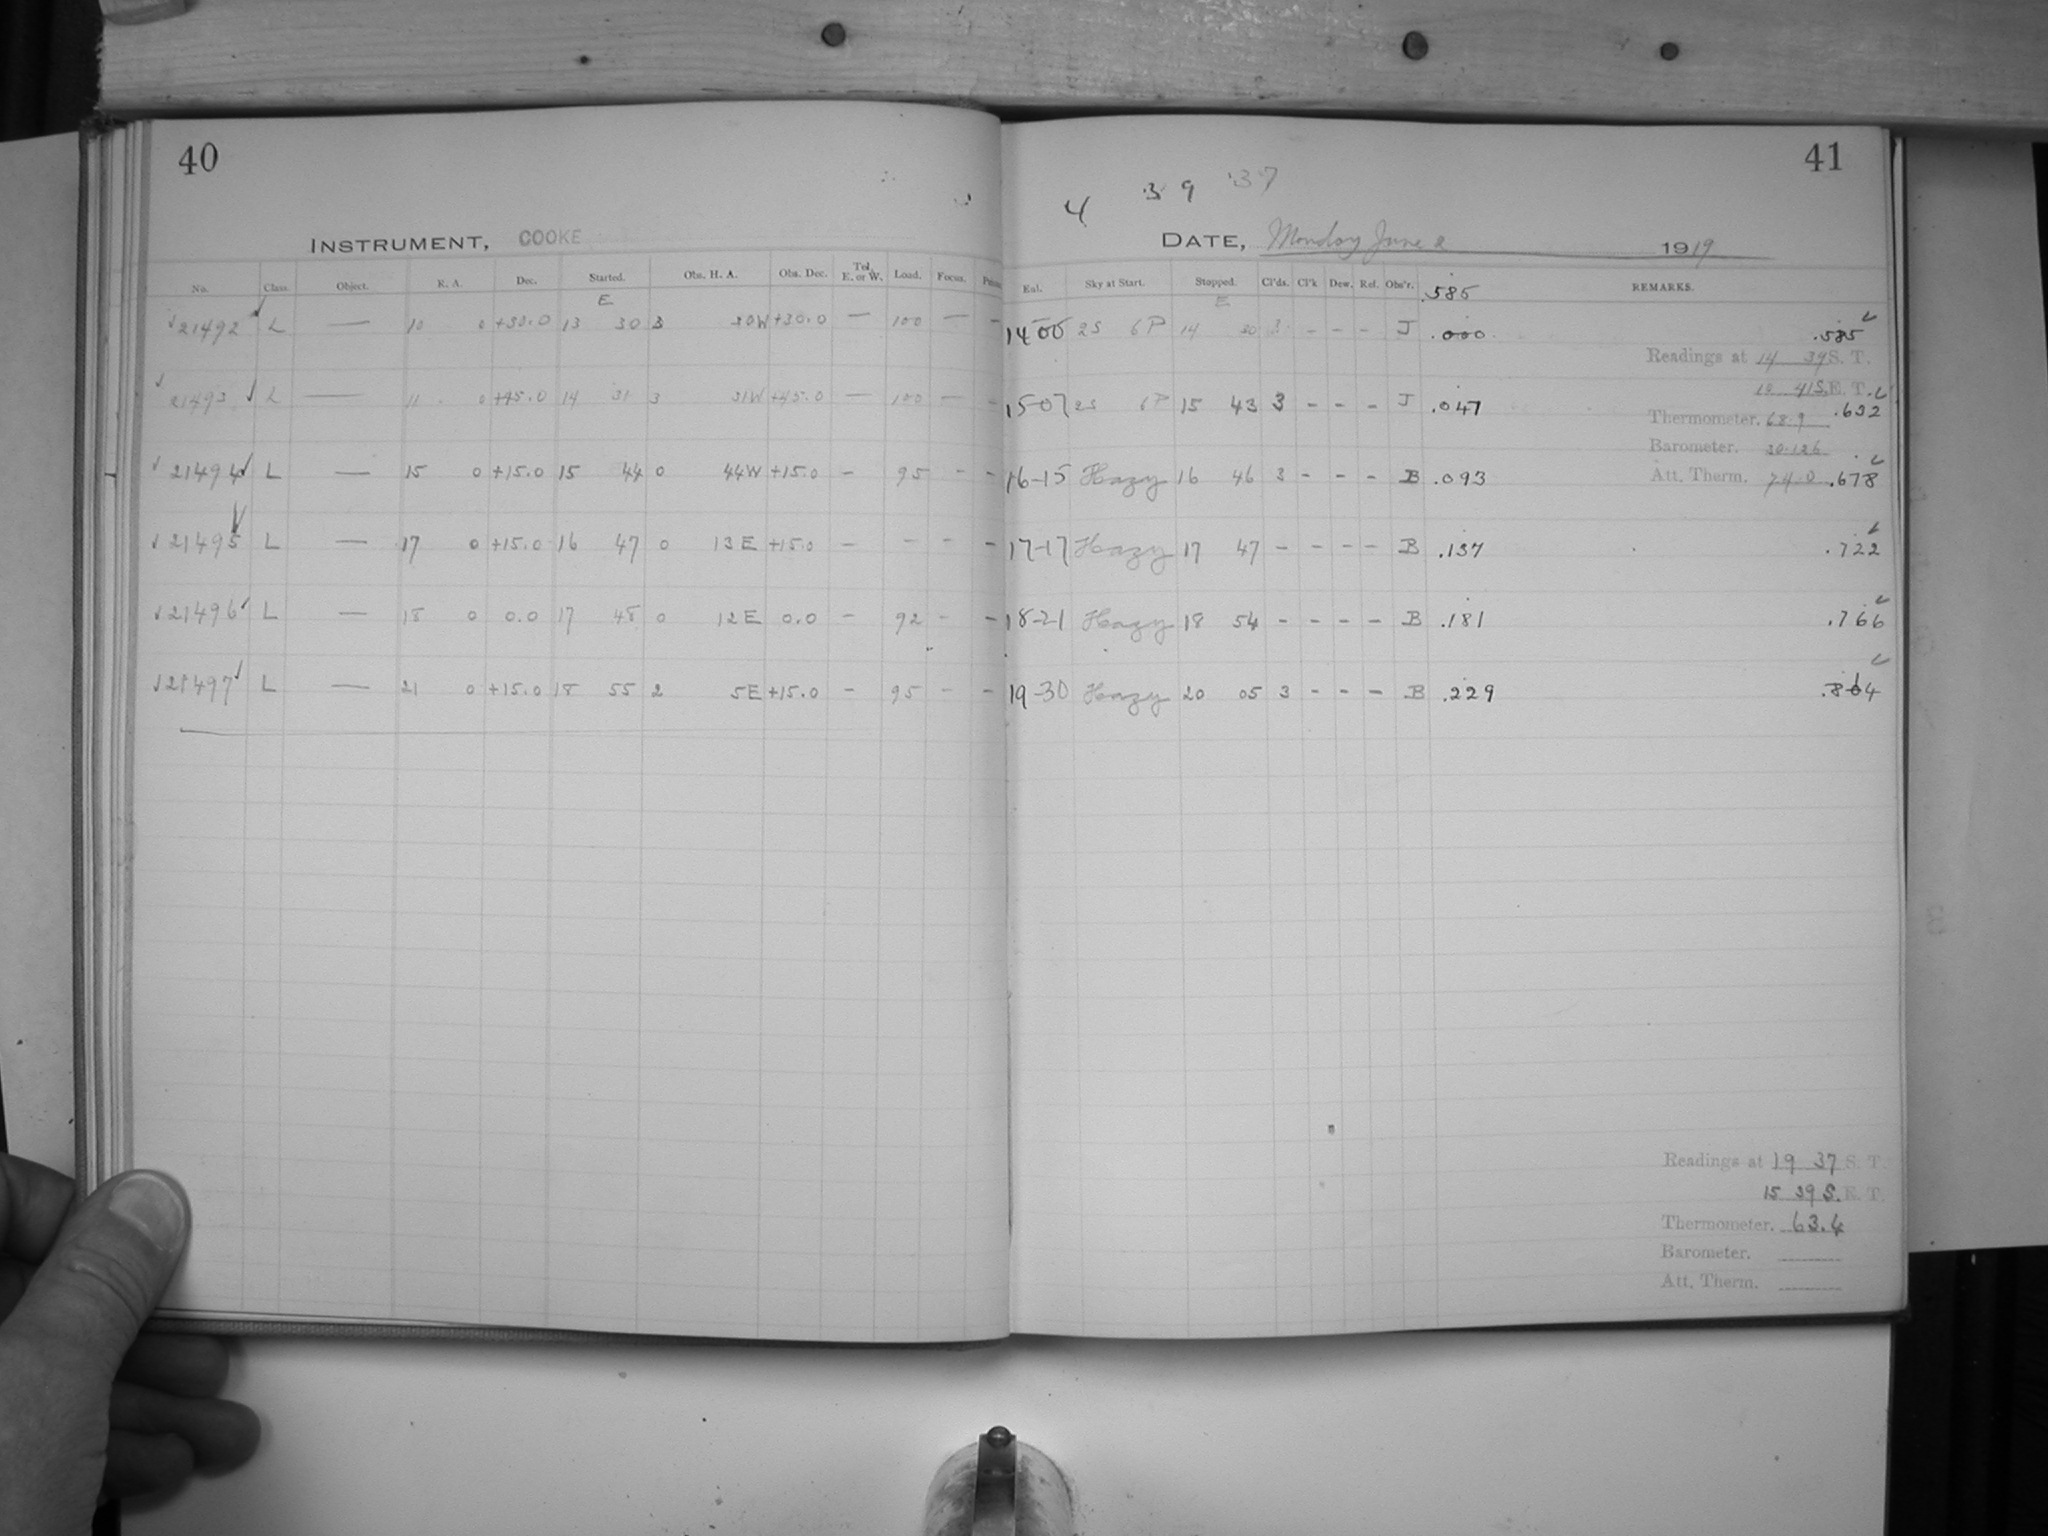 40
INSTRUMENT, COOKE
No. Class. Object. R. A. Dec. Started. Obs. H. A. Obs. Dec. Tel. E. or W. Load. Focus.
E
21492 L — 10 0 +30.0 13 30 3 30W +30.0 — 100 — —
21493 L — 11 0 +45.0 14 31 3 31W +45.0 — 100 — —
21494 L — 15 0 +15.0 15 44 0 44W +15.0 – 95 – –
21495 L — 17 0 +15.0 16 47 0 13E +15.0 – – – –
21496 L — 18 0 0.0 17 48 0 12E 0.0 – 92 – –
21497 L — 21 0 +15.0 18 55 2 5E +15.0 – 95 – –
41
4 39 37
DATE, Monday June 2 1919
Eul. Sky at Start. Stopped. Cl'ds. Cl'k Dew. Ref. Obs'r. .585 REMARKS.
E
14 00 2S 6P 14 30 3 – – – J .000 .585
Readings at 14 39 S. T.
10 41 S.E. T.
15-07 2S 6P 15 43 3 – – – J .047 .632
Thermometer. 68.9
Barometer. 30.126
16-15 Hazy 16 46 3 – – – B .093 .678
Att. Therm. 74.0
17-17 Hazy 17 47 – – – – B .137 .722
18-21 Hazy 18 54 – – – – B .181 .766
19-30 Hazy 20 05 3 – – – B .229
Readings at 19 37 S. T.
15 39 S.E. T.
Thermometer. 63.4
Barometer.
Att. Therm.